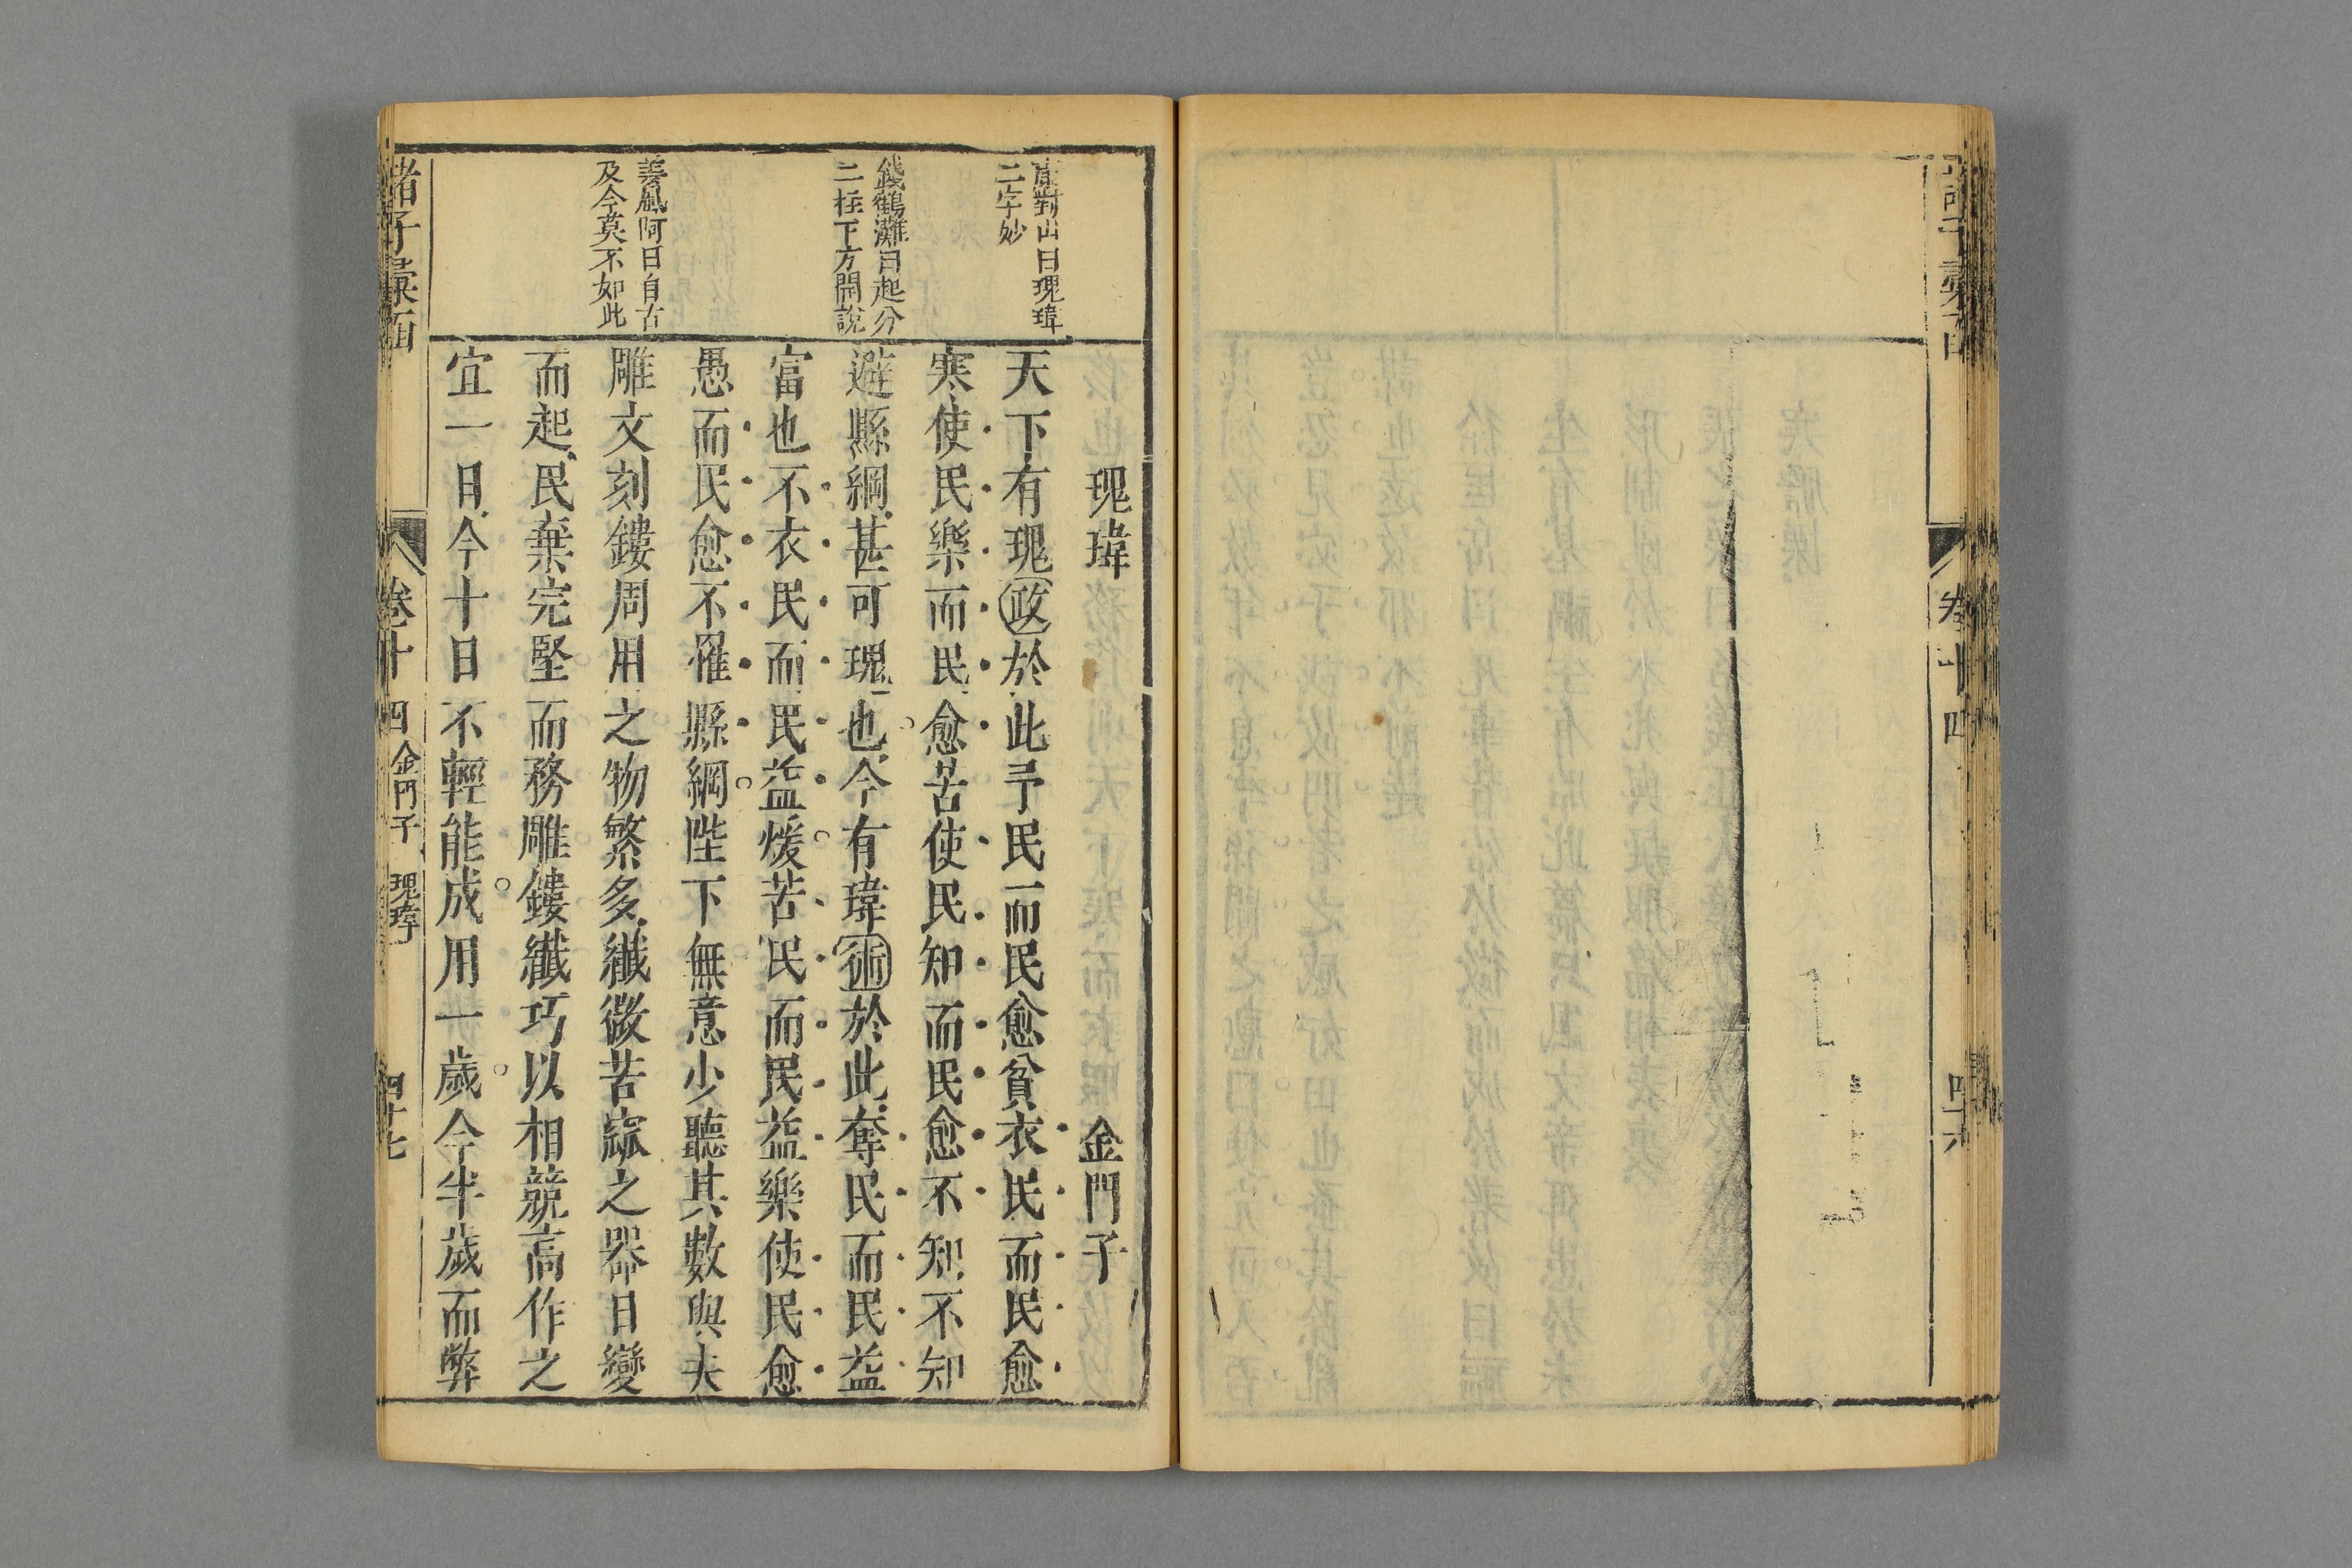 卷十四
四十六
瑰瑋 金門子
康對山曰瑰瑋
二字妙
錢鶴灘曰起分
二柱下方開說
姜鳳阿曰自古
及今莫不如此
天下有瑰政於此予民而民愈貧衣民而民愈
寒使民樂而民愈苦使民知而民愈不知不知
避縣網甚可瑰也今有瑋術於此奪民而民益
富也不衣民而民益煖苦民而民益樂使民愈
愚而民愈不罹縣網陛下無意少聽其數與夫
雕文刻鏤周用之物繁多纖微苦窳之器日變
而起民棄完堅而務雕鏤纖巧以相競高作之
宜一日今十日不輕能成用一歲今半歲而弊
諸子彙函 卷十四 金門子 瑰瑋 四十七